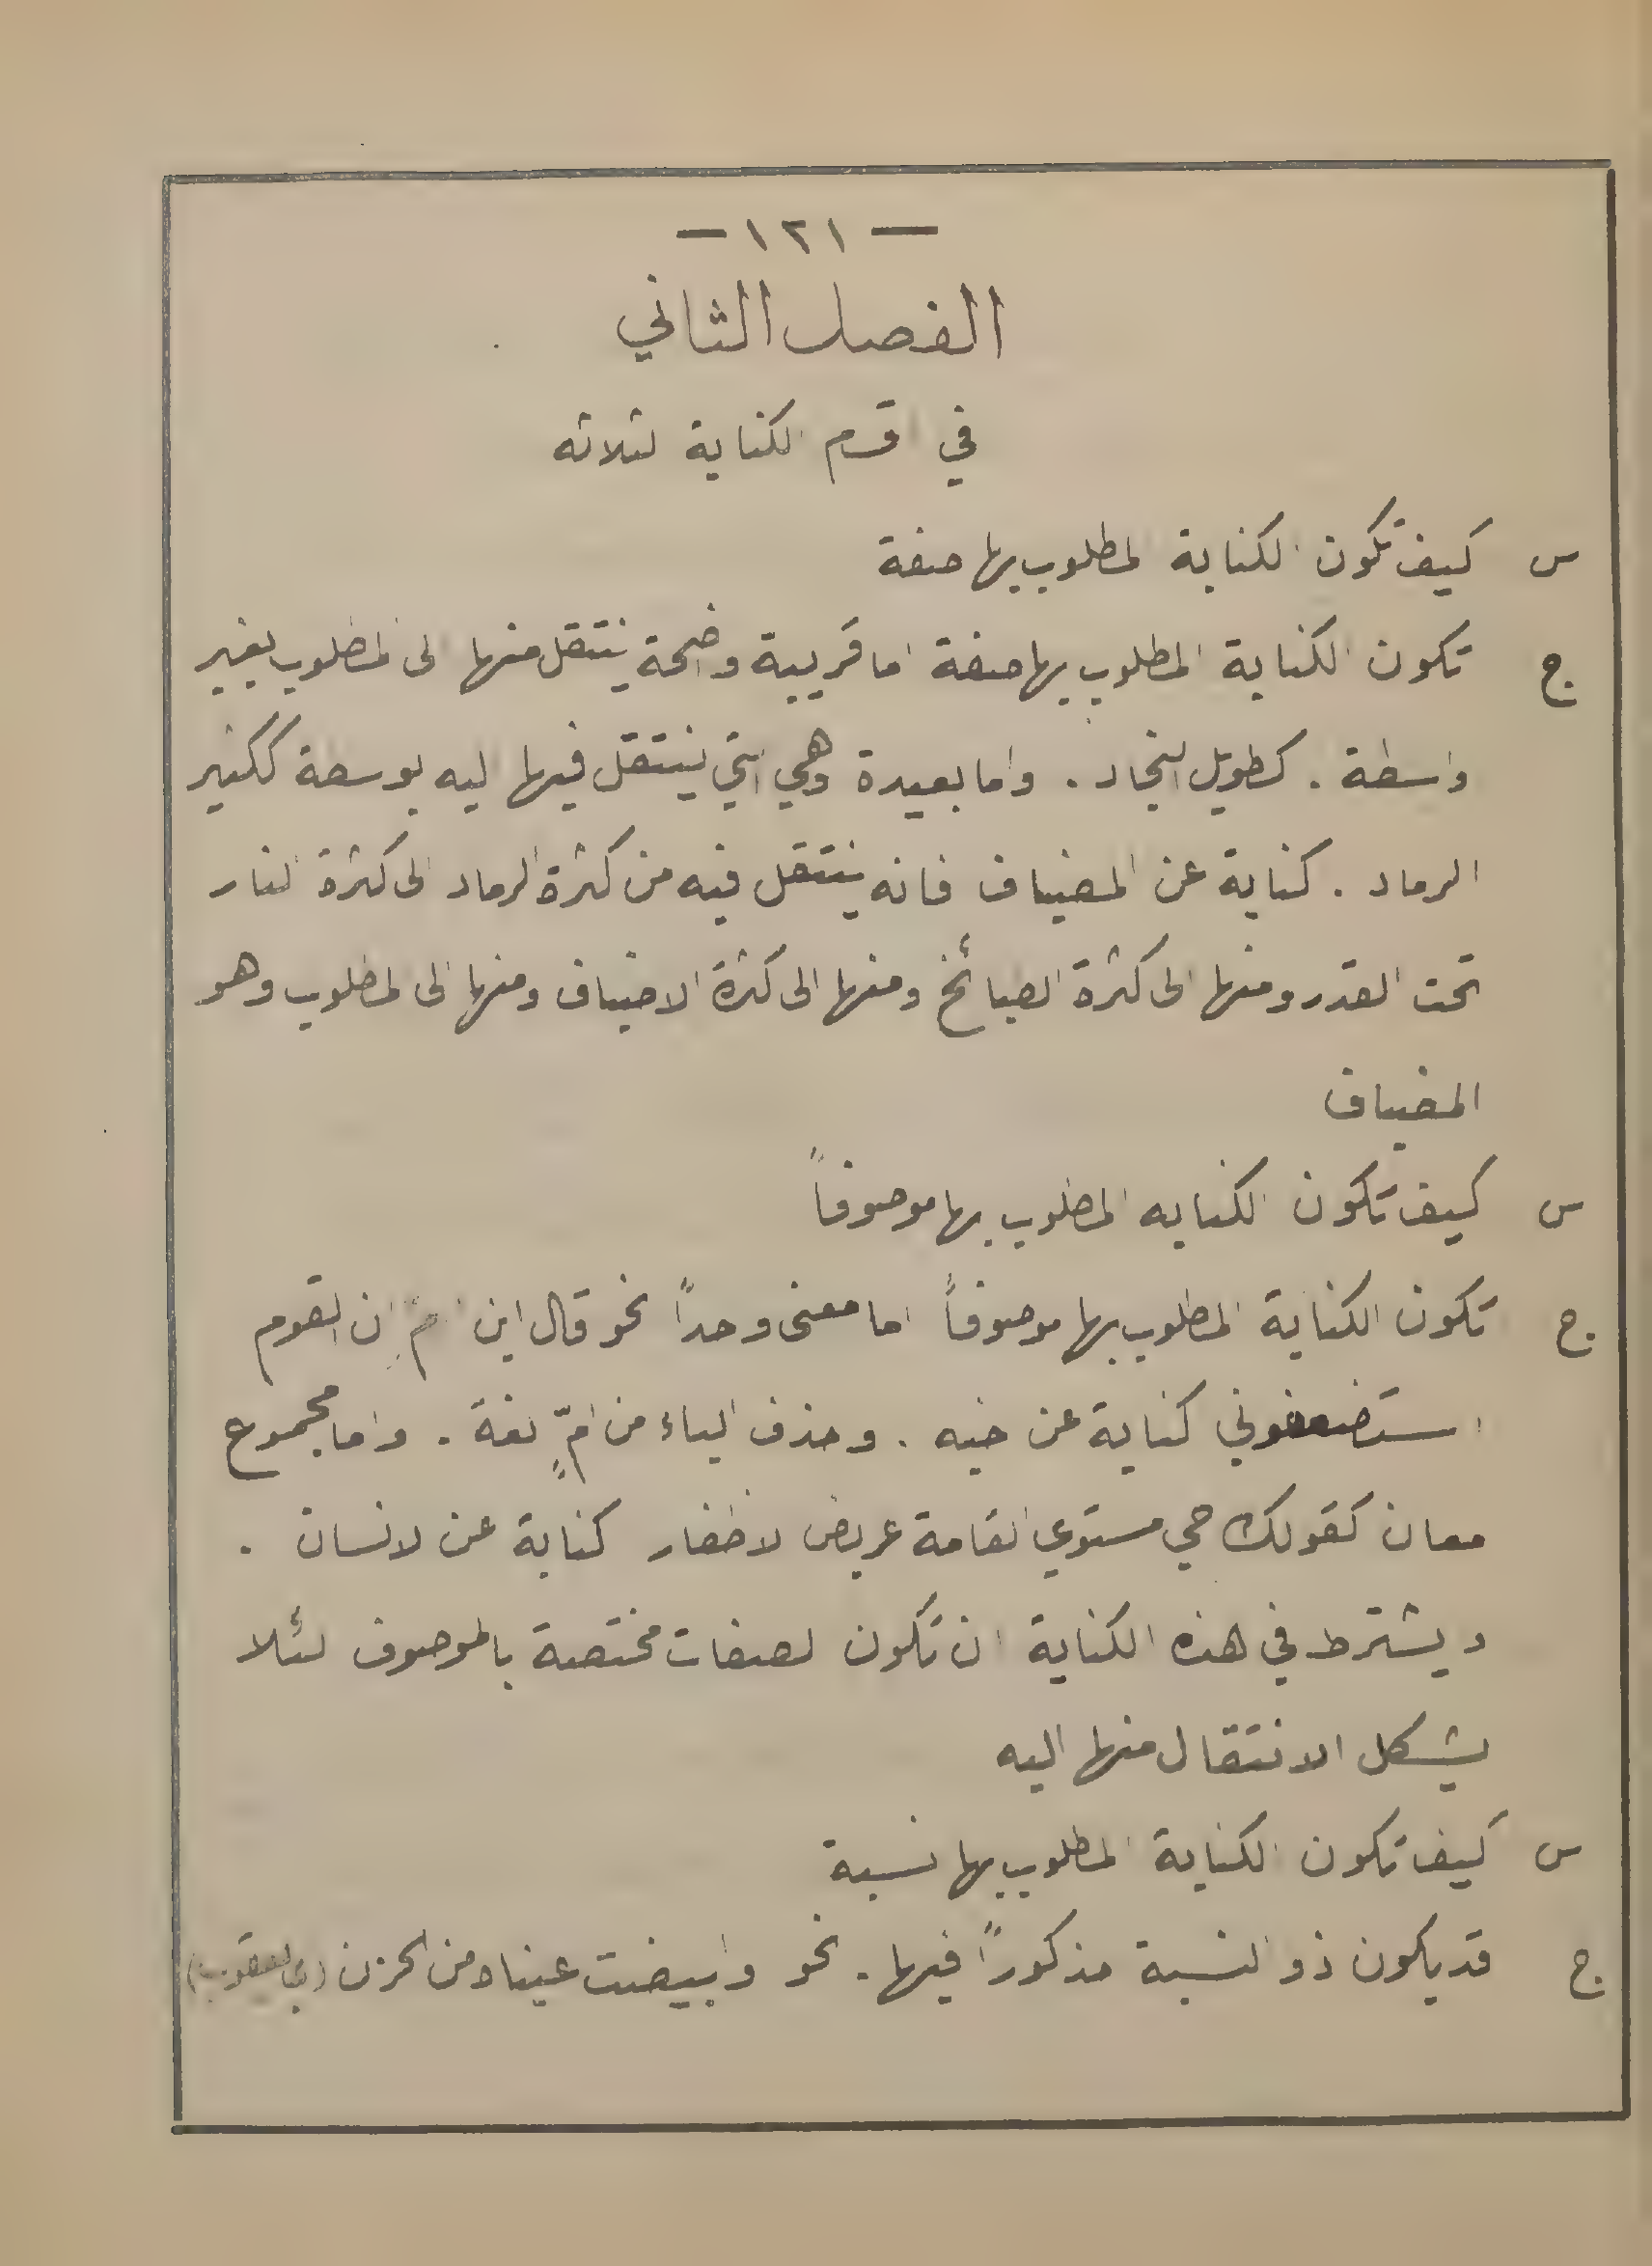 — ١٢١ —
الفصل الثاني
في اقسام الكناية الثلاثه
س كيف تكون الكناية المطلوب بها صفة
ج تكون الكناية المطلوب بها صفة اما قريبة واضحة ينتقل منها الى المطلوب بغير
واسطة . كطويل النجاد . واما بعيدة وهي التي ينتقل فيها اليه بوسطة ككثير
الرماد . كناية عن المضياف فانه ينتقل فيه من كثرة الرماد الى كثرة النار
تحت القدر ومنها الى كثرة الطبائخ ومنها الى كثرة الاضياف ومنها الى المطلوب وهو
المضياف
س كيف تكون الكنايه المطلوب بها موصوفاً
ج تكون الكناية المطلوب بها موصوفاً اما معنى واحداً نحو قال ابن امِّ ان القوم
استضعفوني كناية عن اخيه . وحذف الياء من امٍّ لغة . واما مجموع
معان كقولك حي مستوي القامة عريض الاظفار كناية عن الانسان .
ويشترط في هذه الكناية ان تكون الصفات مختصة بالموصوف لئلا
يشكل الانتقال منها اليه
س كيف تكون الكناية المطلوب بها نسبة
ج قد يكون ذو النسبة مذكوراً فيها . نحو وابيضت عيناه من الحزن (اي يعقوب)